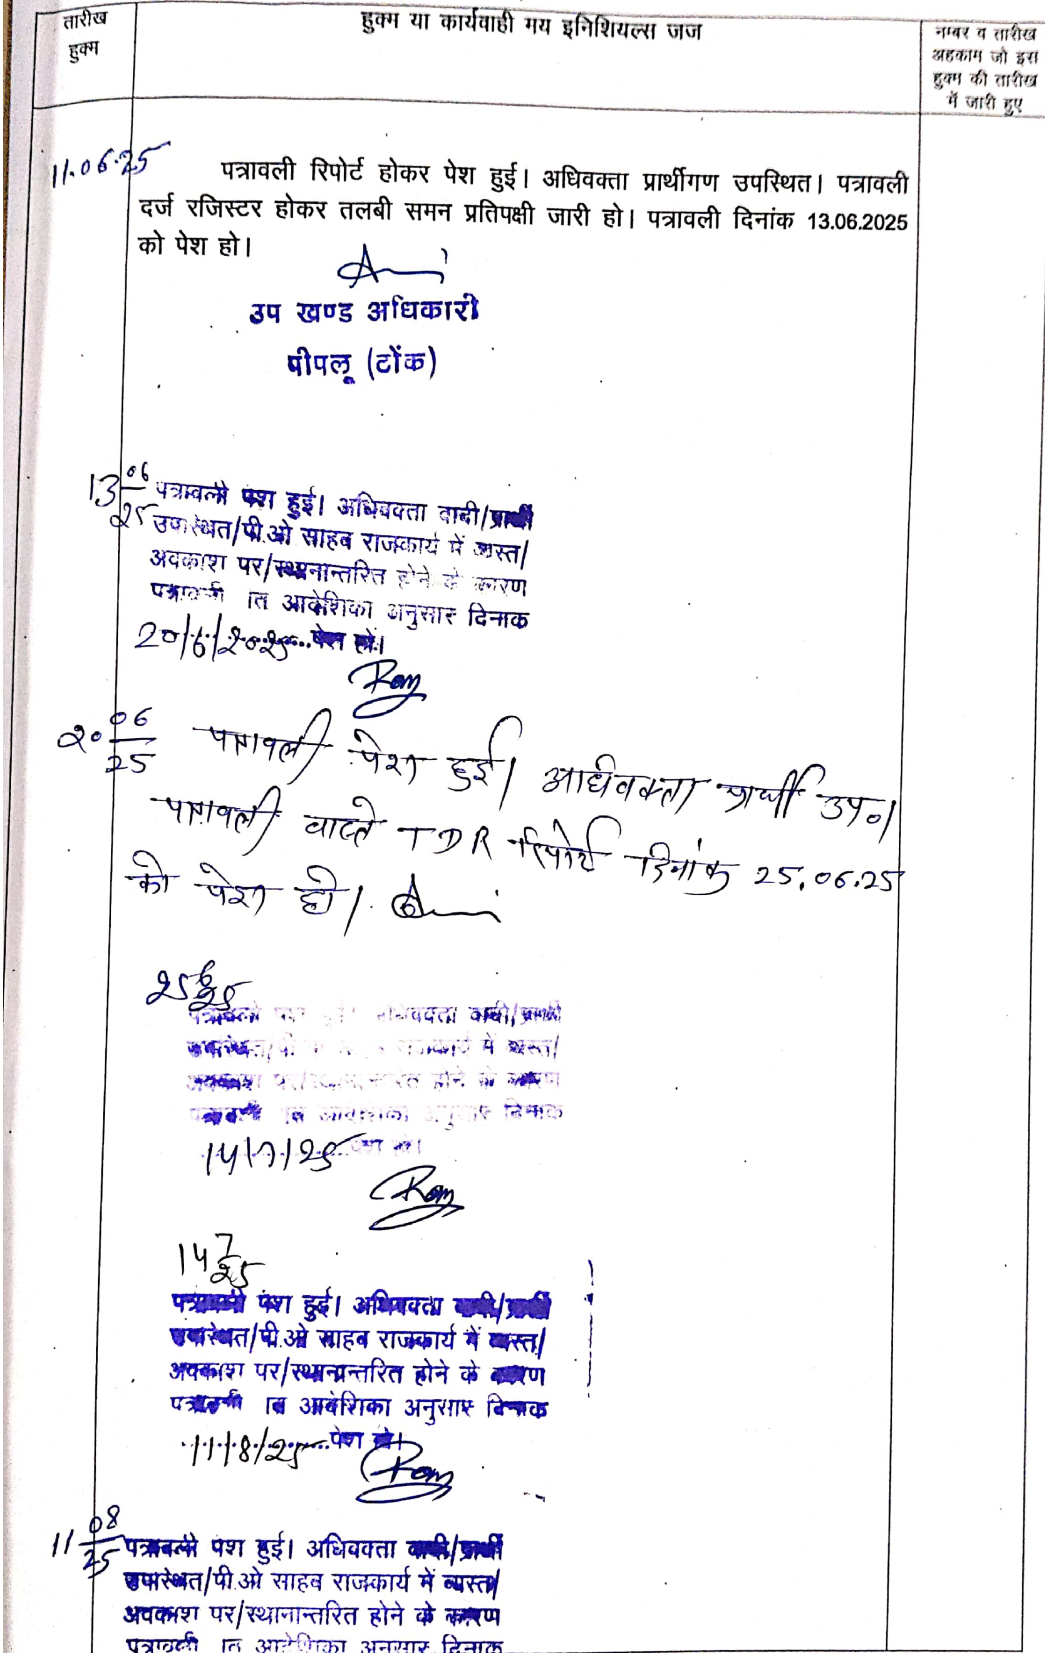 तारीख
हुक्म
हुक्म या कार्यवाही मय इनिशियल्स जज
नम्बर व तारीख
अहकाम जो इस
हुक्म की तारीख
में जारी हुए
11.06.25
पत्रावली रिपोर्ट होकर पेश हुई। अधिवक्ता प्रार्थीगण उपस्थित। पत्रावली
दर्ज रजिस्टर होकर तलबी समन प्रतिपक्षी जारी हो। पत्रावली दिनांक 13.06.2025
को पेश हो।
उप खण्ड अधिकारी
पीपलू (टोंक)
13 06/25
पत्रावली पेश हुई। अधिवक्ता वादी/प्रार्थी
उपस्थित/पी.ओ साहब राजकार्य में व्यस्त/
अवकाश पर/स्थानान्तरित होने के कारण
पत्रावली आदेशिका अनुसार दिनांक
20/6/2025 पेश हो।
20 06/25
पत्रावली पेश हुई। अधिवक्ता प्रार्थी उप०।
पत्रावली वास्ते TDR रिपोर्ट दिनांक 25.06.25
को पेश हो।
25 6/25
पत्रावली पेश हुई। अधिवक्ता वादी/प्रार्थी
उपस्थित/पी राजकार्य में व्यस्त/
अवकाश पर/स्थानान्तरित होने के कारण
पत्रावली आदेशिका अनुसार दिनांक
14/7/25 पेश हो।
14 7/25
पत्रावली पेश हुई। अधिवक्ता वादी/प्रार्थी
उपस्थित/पी.ओ साहब राजकार्य में व्यस्त/
अवकाश पर/स्थानान्तरित होने के कारण
पत्रावली आदेशिका अनुसार दिनांक
11/8/25 पेश हो।
11 08/25
पत्रावली पेश हुई। अधिवक्ता वादी/प्रार्थी
उपस्थित/पी.ओ साहब राजकार्य में व्यस्त/
अवकाश पर/स्थानान्तरित होने के कारण
पत्रावली आदेशिका अनुसार दिनांक